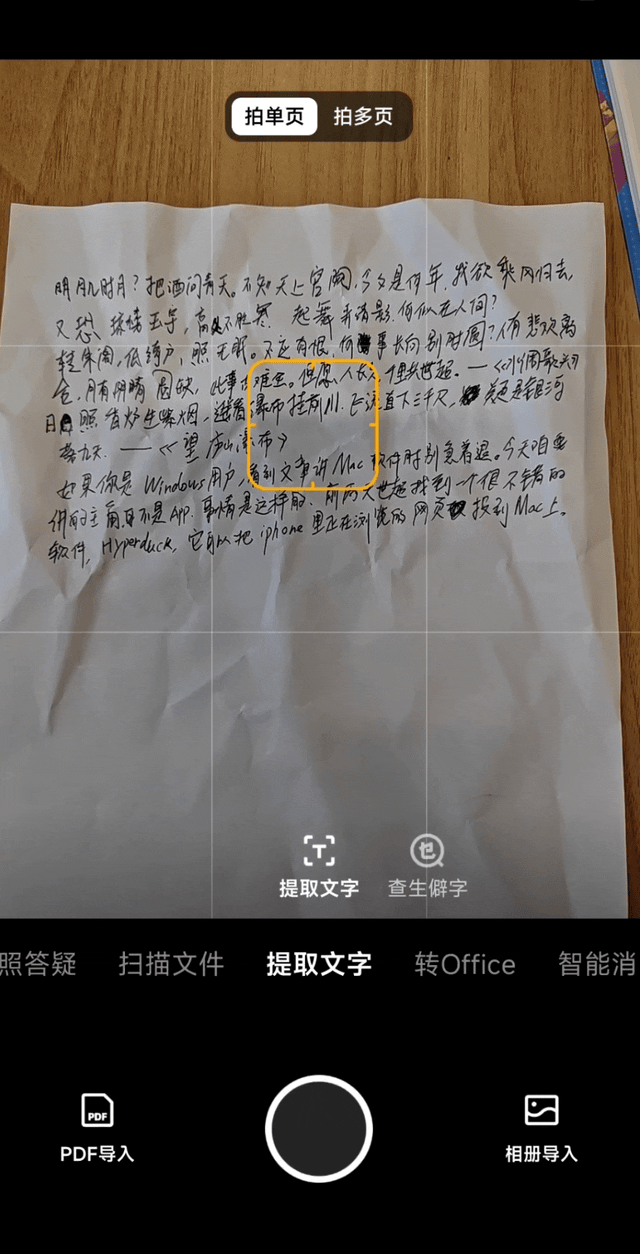 拍单页 拍多页
明月几时月？把酒问青天。不知天上宫阙，今夕是何年。我欲乘风归去，
又恐 琼楼玉宇，高处不胜寒. 起舞弄清影，何似在人间？
转朱阁，低绮户，照无眠。不应有恨，何事长向别时圆？人有悲欢离
合，月有阴晴圆缺，此事古难全。但愿人长久，——《水调歌头》
日照香炉生紫烟，遥看瀑布挂前川. 飞流直下三千尺，是银河
落九天. ——《望庐山瀑布》
如果你是 Windows 用户，看到文章讲 Mac 软件时别急着退。今天咱要
讲的主角且不是 App. 事情是这样的，前两天世超找到一个很不错的
软件，Hyperduck，它可以把 iphone 里正在浏览的网页 投到 Mac 上。
提取文字 查生僻字
照答疑 扫描文件 提取文字 转Office 智能消
PDF
PDF导入 相册导入